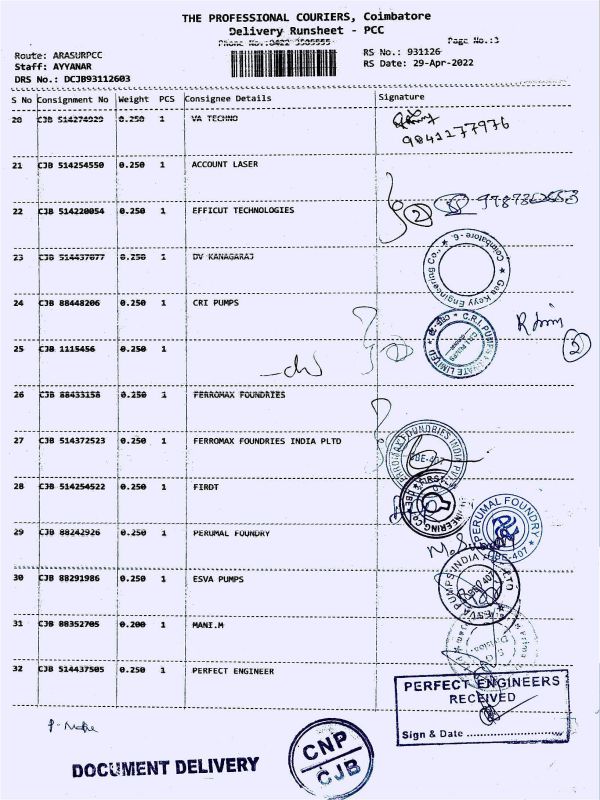 THE PROFESSIONAL COURIERS, Coimbatore
Delivery Runsheet - PCC
Phone No.:0422 3505555 Page No.:3
Route: ARASURPCC RS No.: 931126
Staff: AYYANAR RS Date: 29-Apr-2022
DRS No.: DCJB93112603
S No Consignment No Weight PCS Consignee Details Signature
20 CJB 514274929 0.250 1 VA TECHNO
9841277976
21 CJB 514254550 0.250 1 ACCOUNT LASER
22 CJB 514220054 0.250 1 EFFICUT TECHNOLOGIES
2
23 CJB 514437077 0.250 1 DV KANAGARAJ
Geo Keyy Engineering Co., Coimbatore - 6.
24 CJB 88448206 0.250 1 CRI PUMPS
C.R.I. PUMPS PRIVATE LIMITED
2
25 CJB 1115456 0.250 1
26 CJB 88433158 0.250 1 FERROMAX FOUNDRIES
27 CJB 514372523 0.250 1 FERROMAX FOUNDRIES INDIA PLTD
FOUNDRIES INDIA PVT
CBE-407
28 CJB 514254522 0.250 1 FIRDT
FIRST ENGINEERING
29 CJB 88242926 0.250 1 PERUMAL FOUNDRY
PERUMAL FOUNDRY
CBE-407
30 CJB 88291986 0.250 1 ESVA PUMPS
ESVA PUMPS INDIA LTD
31 CJB 88352705 0.200 1 MANI.M
32 CJB 514437505 0.250 1 PERFECT ENGINEER
PERFECT ENGINEERS
RECEIVED
Sign & Date
DOCUMENT DELIVERY
CNP
CJB